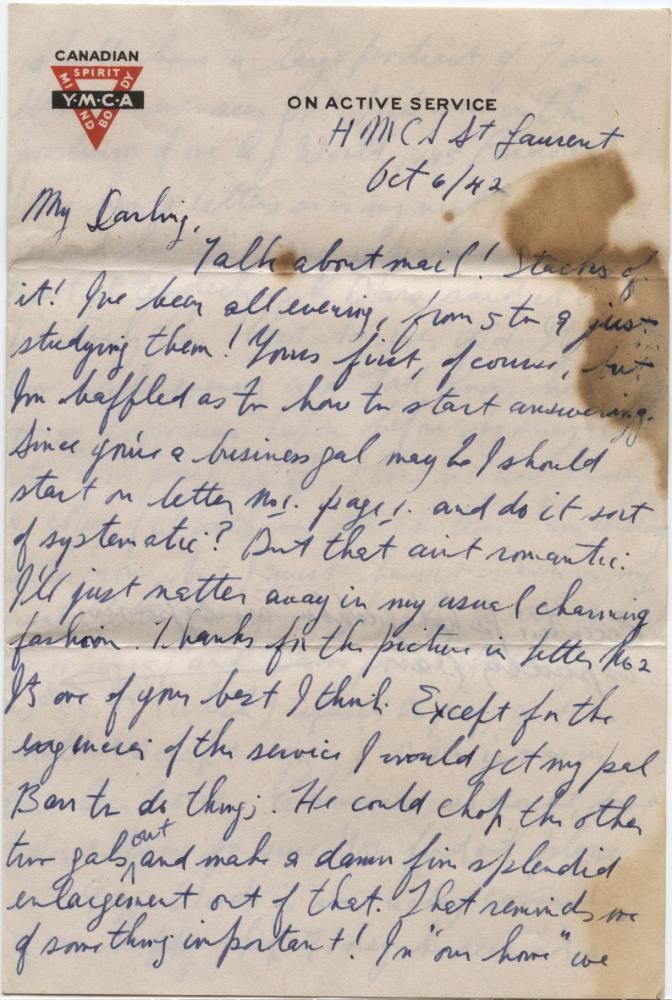 CANADIAN
SPIRIT
MIND BODY
Y·M·C·A
ON ACTIVE SERVICE
HMCS St Laurent
Oct 6/42
My Darling,
Talk about mail! Stacks of
it! I've been all evening, from 5 to 9 just
studying them! Yours first, of course, but
I'm baffled as to how to start answering.
Since you're a business gal maybe I should
start on letter no 1. page 1. and do it sort
of systematic? But that aint romantic.
I'll just natter away in my usual charming
fashion. Thanks for the picture in letter No 2
It's one of your best I think. Except for the
exigencies of the service I would get my pal
to do things. He could chop the other
two gals out and make a damn fine splendid
enlargement out of that. That reminds me
of something important! In "our home" we